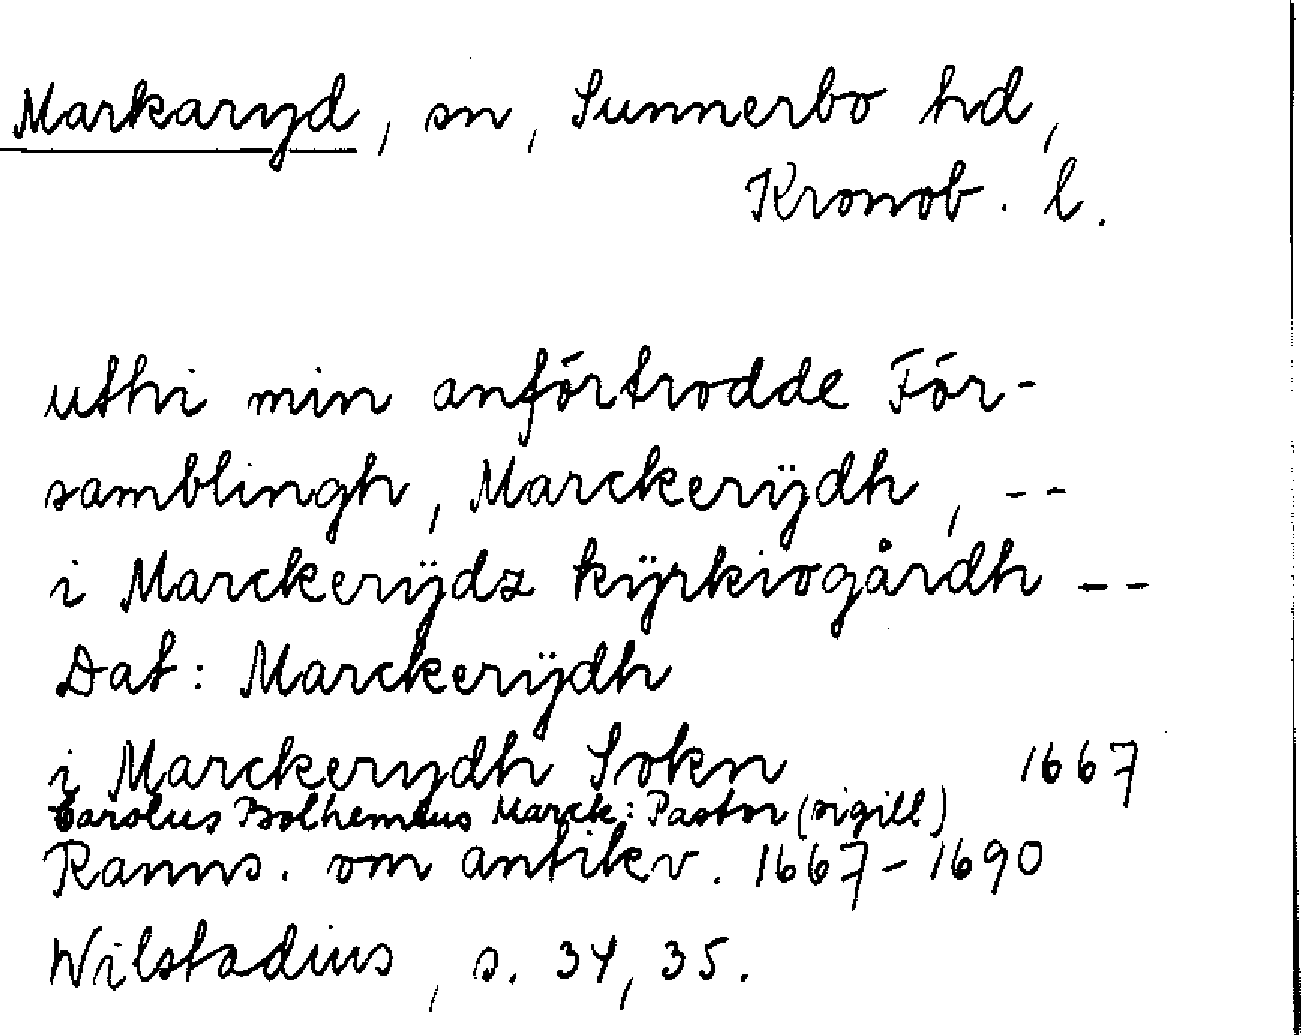 Markaryd, sn, Sunnerbo hd,
Kronob. l.
uthi min anförtrodde För-
samblingh, Marckerÿdh, --
i Marckerÿdz kÿrkiogårdh --
Dat: Marckerÿdh
i Marckerydh Sokn 1667
Carolus Bolhemius Marck: Pastor (sigill)
Ranns. om antikv. 1667-1690
Wilstadius, s. 34, 35.